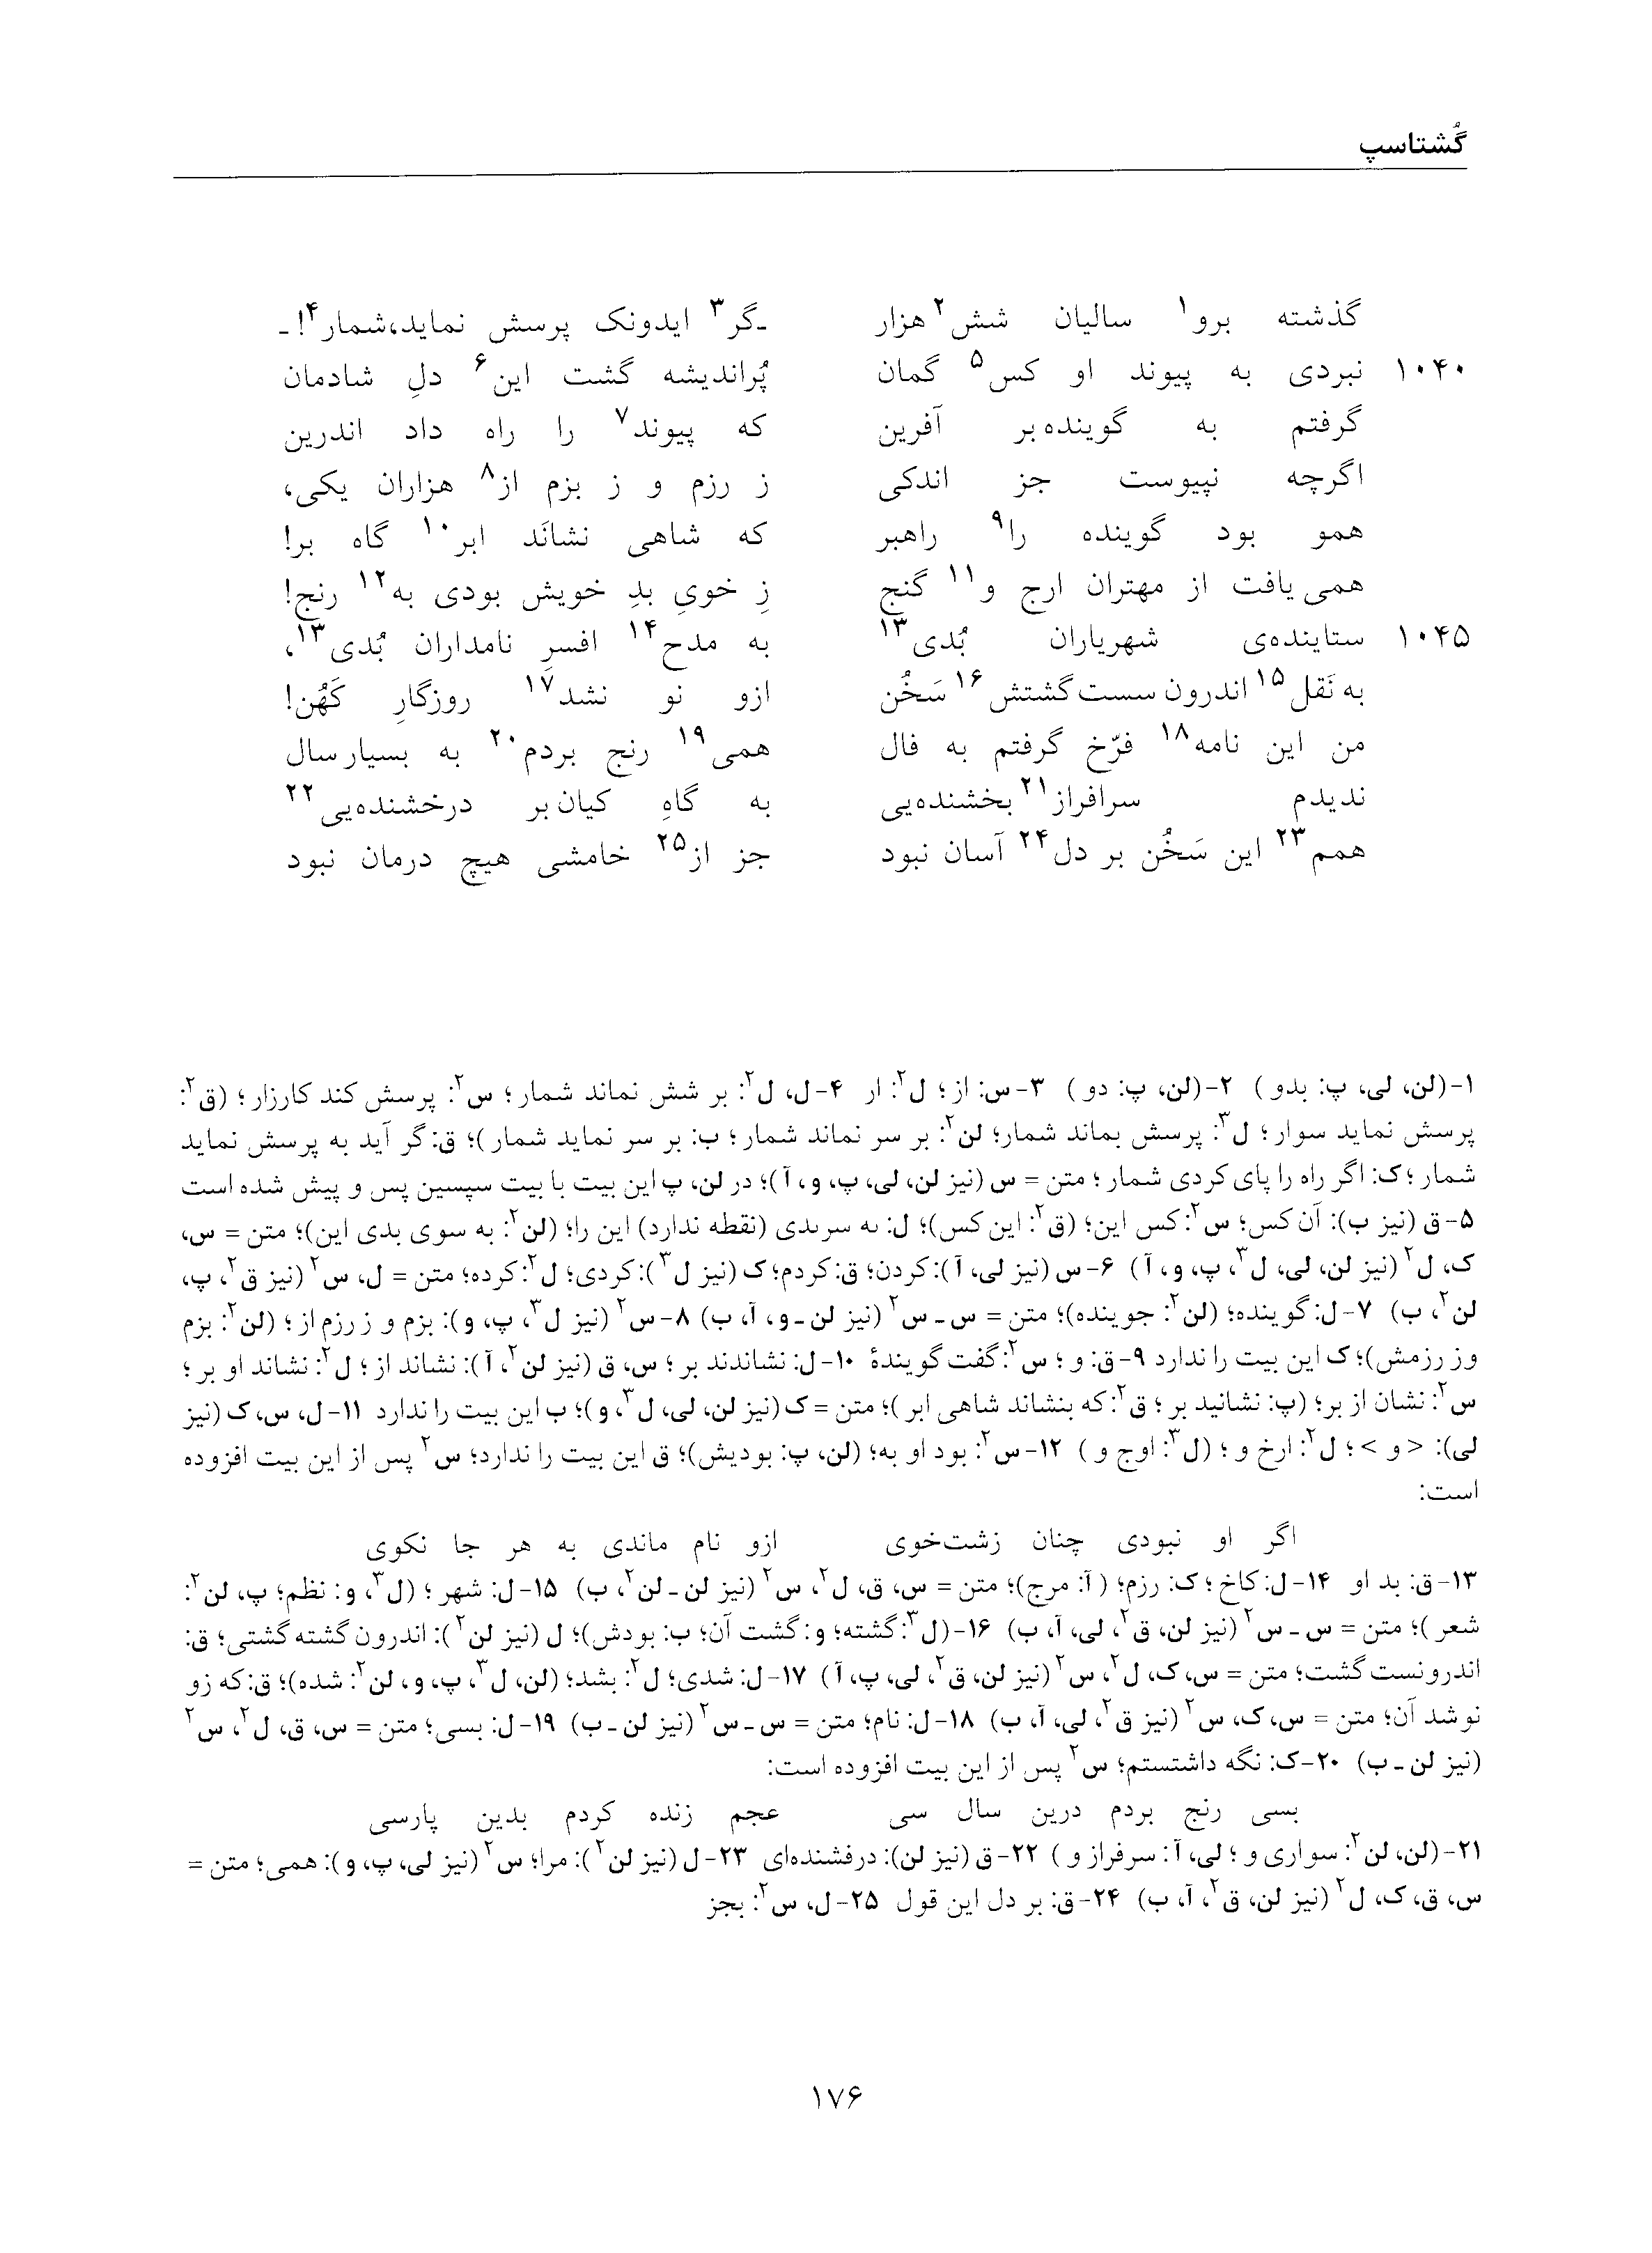 گُشتاسپ
گذشته برو۱ سالیان شش۲ هزار ـگر۳ ایدونک پرسش نماید، شمار۴!ـ
۱۰۴۰ نبردی به پیوند او کس۵ گمان پُراندیشه گشت این۶ دلِ شادمان
گرفتم به گوینده‌بر آفرین که پیوند۷ را راه داد اندرین
اگرچه نپیوست جز اندکی ز رزم و ز بزم از۸ هزاران یکی،
همو بود گوینده را۹ راهبر که شاهی نشانَد ابر۱۰ گاه بر!
همی‌یافت از مهتران ارج و۱۱ گنج زِ خویِ بدِ خویش بودی به۱۲ رنج!
۱۰۴۵ ستاینده‌ی شهریاران بُدی۱۳ به مدح۱۴ افسرِ نامداران بُدی۱۳،
به نَقل۱۵ اندرون سست گشتش۱۶ سَخُن ازو نو نشد۱۷ روزگارِ کَهُن!
من این نامه۱۸ فرّخ گرفتم به فال همی۱۹ رنج بردم۲۰ به بسیار سال
ندیدم سرافراز۲۱ بخشنده‌یی به گاهِ کیان‌بر درخشنده‌یی۲۲
همم۲۳ این سَخُن بر دل۲۴ آسان نبود جز از۲۵ خامشی هیچ درمان نبود
۱-(لن، لی، پ: بدو) ۲-(لن، پ: دو) ۳-س: از؛ ل۲: ار ۴-ل، ل۲: بر شش نماند شمار؛ س۲: پرسش کند کارزار؛ (ق۲:
پرسش نماید سوار؛ ل۳: پرسش بماند شمار؛ لن۲: بر سر نماند شمار؛ ب: بر سر نماید شمار)؛ ق: گر آید به پرسش نماید
شمار؛ ک: اگر راه را پای کردی شمار؛ متن = س (نیز لن، لی، پ، و، آ)؛ در لن، پ این بیت با بیت سپسین پس و پیش شده است
۵-ق (نیز ب): آن کس؛ س۲: کس این؛ (ق۲: این کس)؛ ل: به سربدی (نقطه ندارد) این را؛ (لن۲: به سوی بدی این)؛ متن = س،
ک، ل۲ (نیز لن، لی، ل۳، پ، و، آ) ۶-س (نیز لی، آ): کردن؛ ق: کردم؛ ک (نیز ل۳): کردی؛ ل۲: کرده؛ متن = ل، س۲ (نیز ق۲، پ،
لن۲، ب) ۷-ل: گوینده؛ (لن۲: جوینده)؛ متن = س ـ س۲ (نیز لن ـ و، آ، ب) ۸-س۲ (نیز ل۳، پ، و): بزم و ز رزم از؛ (لن۲: بزم
وز رزمش)؛ ک این بیت را ندارد ۹-ق: و؛ س۲: گفت گویندهٔ ۱۰-ل: نشاندند بر؛ س، ق (نیز لن۲، آ): نشاند از؛ ل۲: نشاند او بر؛
س۲: نشان از بر؛ (پ: نشانید بر؛ ق۲: که بنشاند شاهی ابر)؛ متن = ک (نیز لن، لی، ل۳، و)؛ ب این بیت را ندارد ۱۱-ل، س، ک (نیز
لی): < و >؛ ل۲: ارخ و؛ (ل۳: اوج و) ۱۲-س۲: بود او به؛ (لن، پ: بودیش)؛ ق این بیت را ندارد؛ س۲ پس از این بیت افزوده
است:
اگر او نبودی چنان زشت‌خوی ازو نام ماندی به هر جا نکوی
۱۳-ق: بد او ۱۴-ل: کاخ؛ ک: رزم؛ (آ: مرج)؛ متن = س، ق، ل۲، س۲ (نیز لن ـ لن۲، ب) ۱۵-ل: شهر؛ (ل۳، و: نظم؛ پ، لن۲:
شعر)؛ متن = س ـ س۲ (نیز لن، ق۲، لی، آ، ب) ۱۶-(ل۳: گشته؛ و: گشت آن؛ ب: بودش)؛ ل (نیز لن۲): اندرون گشته گشتی؛ ق:
اندرونست گشت؛ متن = س، ک، ل۲، س۲ (نیز لن، ق۲، لی، پ، آ) ۱۷-ل: شدی؛ ل۲: بشد؛ (لن، ل۳، پ، و، لن۲: شده)؛ ق: که زو
نو شد آن؛ متن = س، ک، س۲ (نیز ق۲، لی، آ، ب) ۱۸-ل: نام؛ متن = س ـ س۲ (نیز لن ـ ب) ۱۹-ل: بسی؛ متن = س، ق، ل۲، س۲
(نیز لن ـ ب) ۲۰-ک: نگه داشتستم؛ س۲ پس از این بیت افزوده است:
بسی رنج بردم درین سال سی عجم زنده کردم بدین پارسی
۲۱-(لن، لن۲: سواری و؛ لی، آ: سرفراز و) ۲۲-ق (نیز لن): درفشنده‌ای ۲۳-ل (نیز لن۲): مرا؛ س۲ (نیز لی، پ، و): همی؛ متن =
س، ق، ک، ل۲ (نیز لن، ق۲، آ، ب) ۲۴-ق: بر دل این قول ۲۵-ل، س۲: بجز
۱۷۶